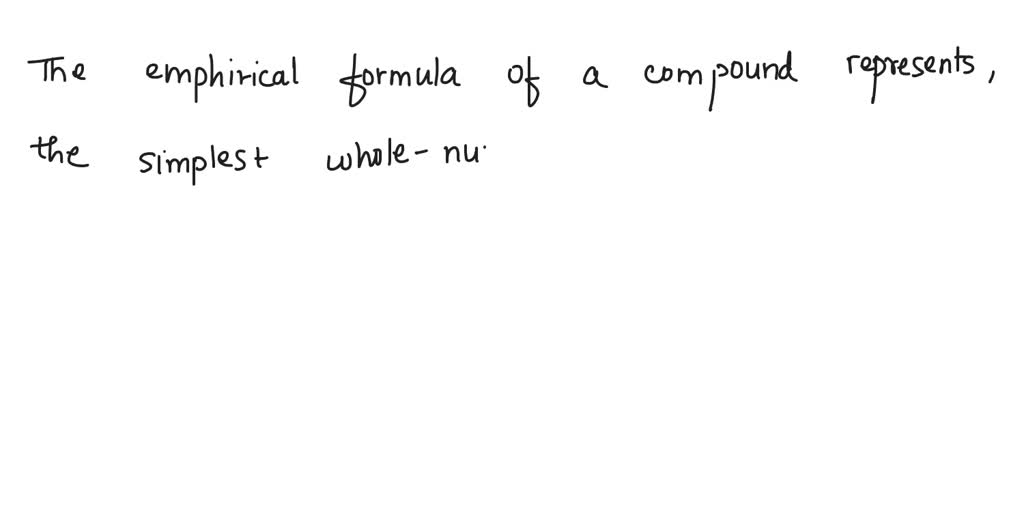 The emphirical formula of a compound represents,
the simplest whole-nu